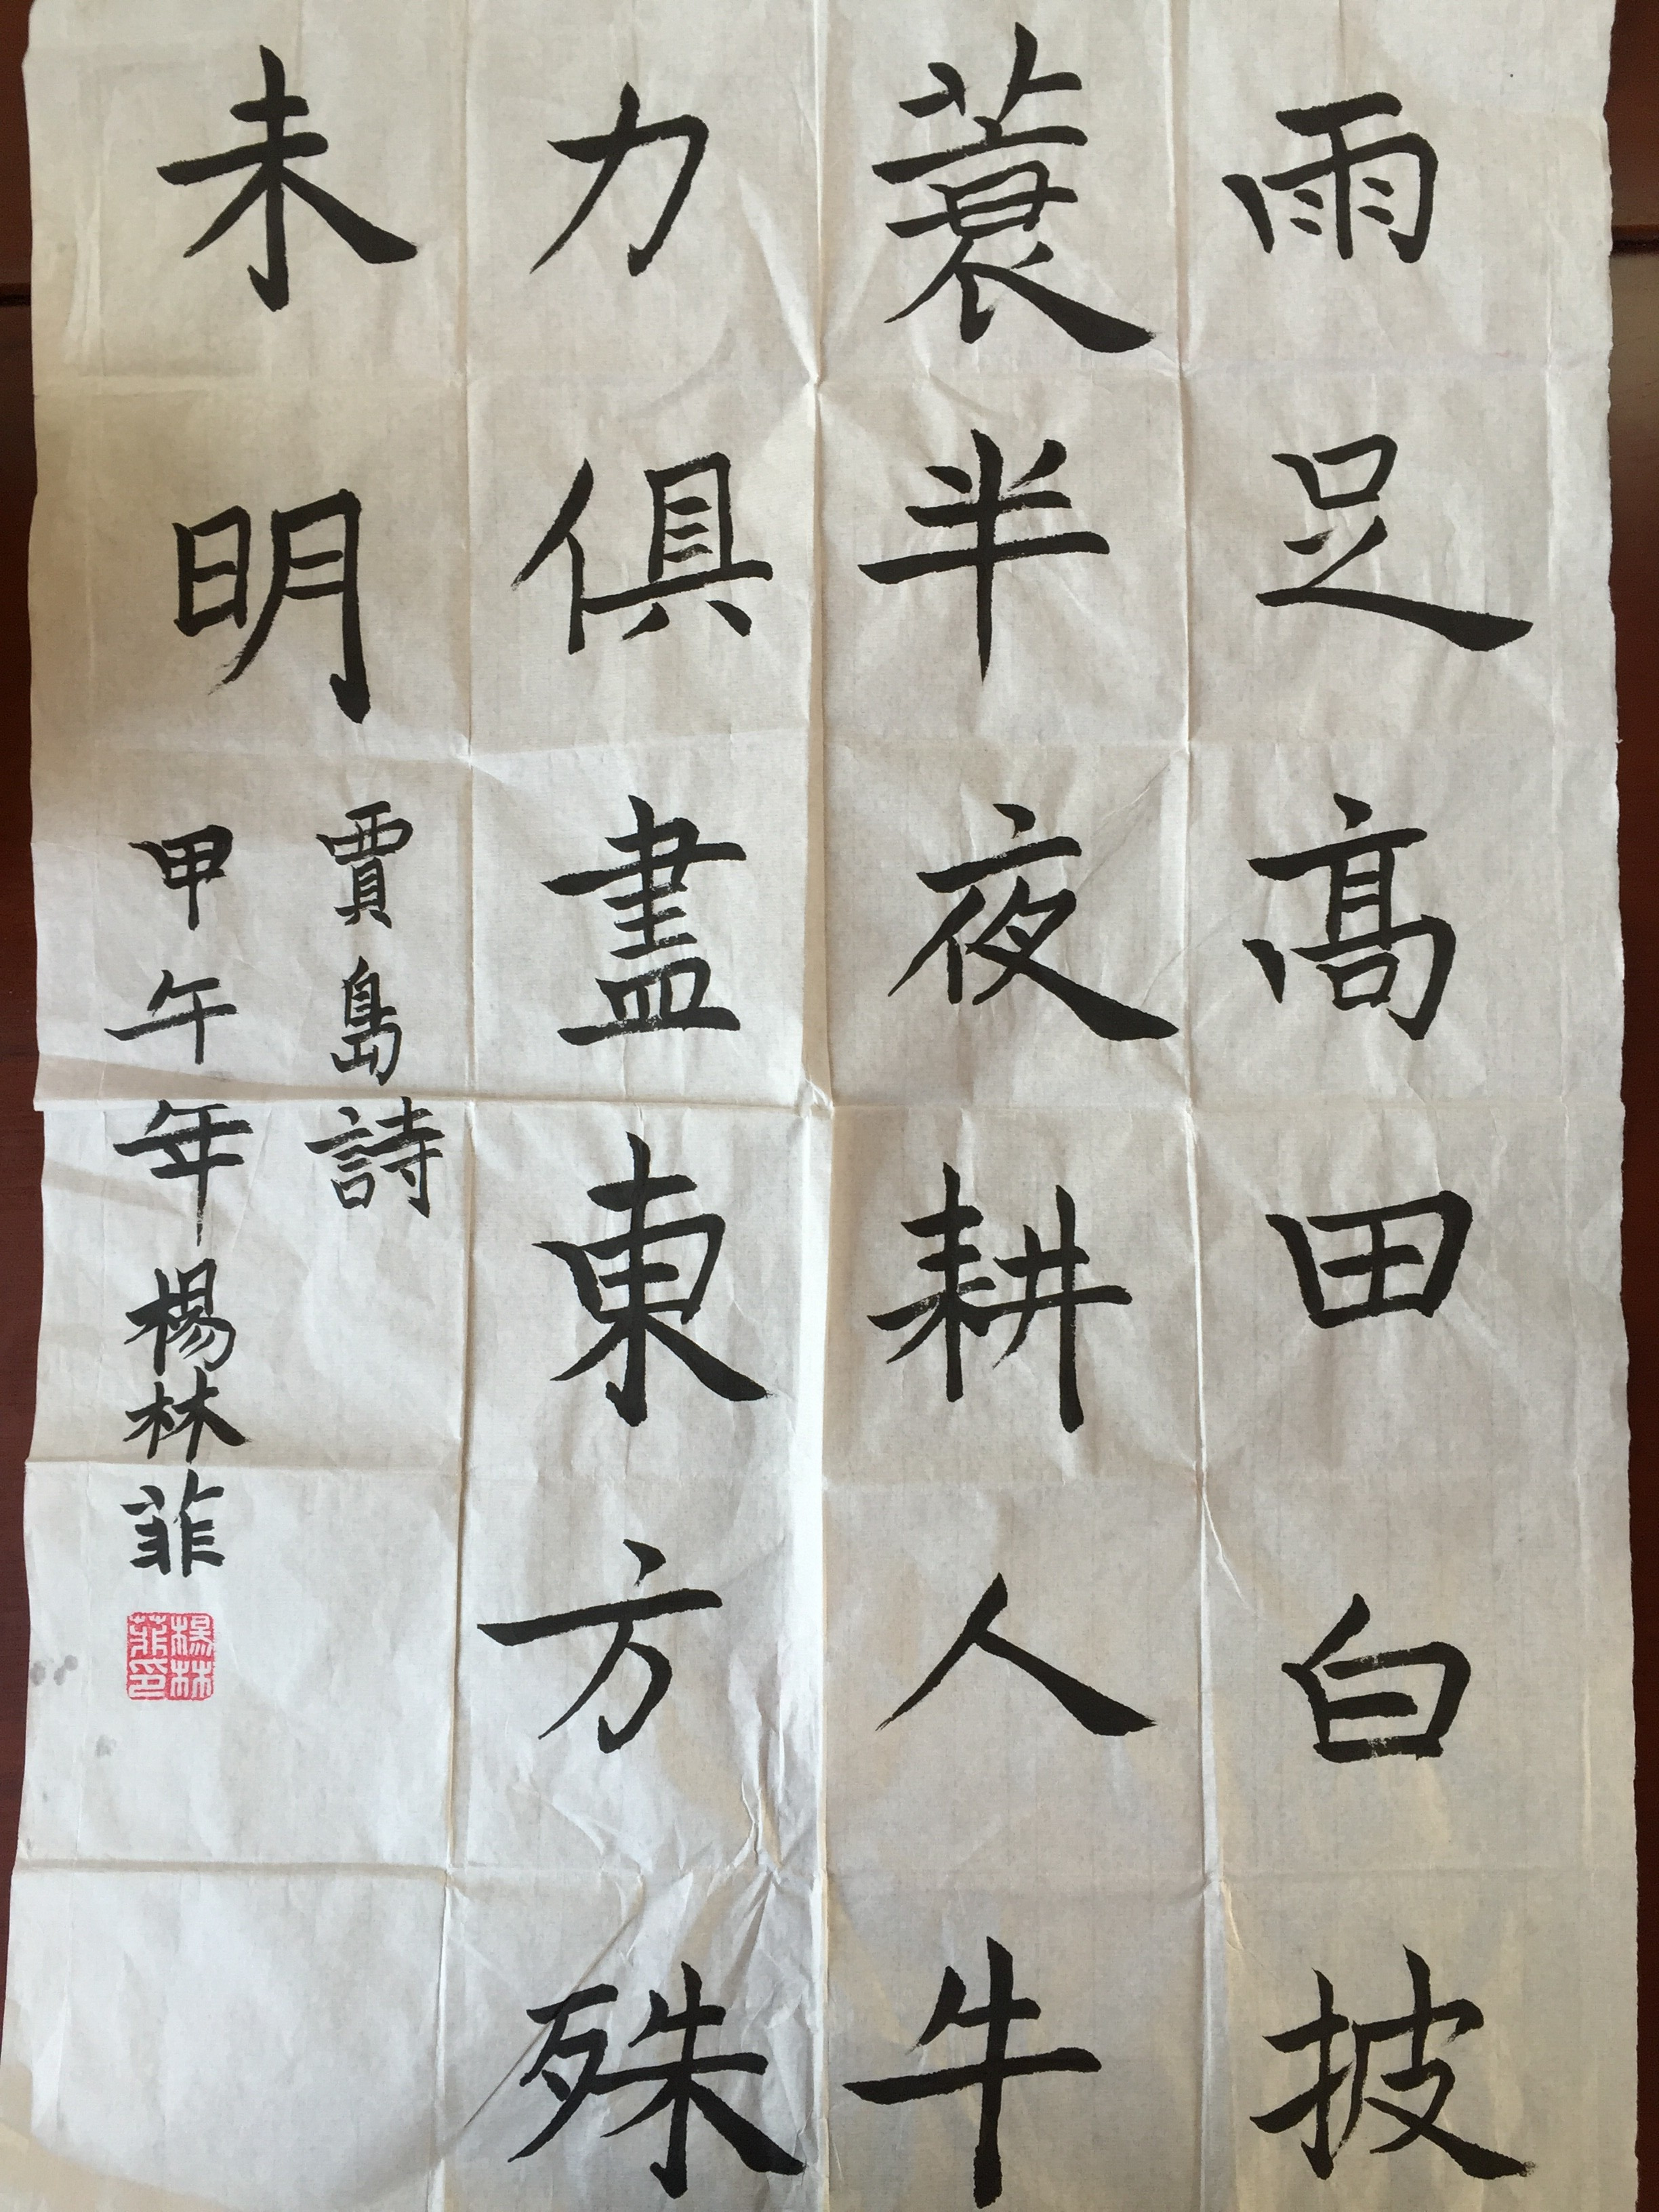 雨足高田白披
蓑半夜耕人牛
力俱盡東方殊
未明
賈島詩
甲午年楊林菲
楊林菲印